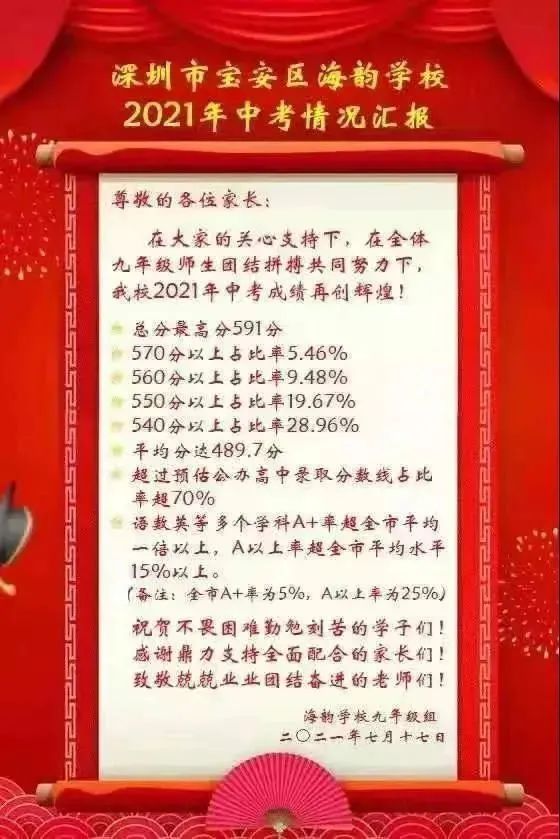 深圳市宝安区海韵学校
2021年中考情况汇报
尊敬的各位家长:
在大家的关心支持下,在全体
九年级师生团结拼搏共同努力下,
我校2021年中考成绩再创辉煌!
总分最高分591分
570分以上占比率5.46%
560分以上占比率9.48%
550分以上占比率19.67%
540分以上占比率28.96%
平均分达489.7分
超过预估公办高中录取分数线占比
率超70%
语数英等多个学科A+率超全市平均
一倍以上,A以上率超全市平均水平
15%以上。
(备注:全市A+率为5%,A以上率为25%)
祝贺不畏困难勤勉刻苦的学子们!
感谢鼎力支持全面配合的家长们!
致敬兢兢业业团结奋进的老师们!
海韵学校九年级组
二〇二一年七月十七日